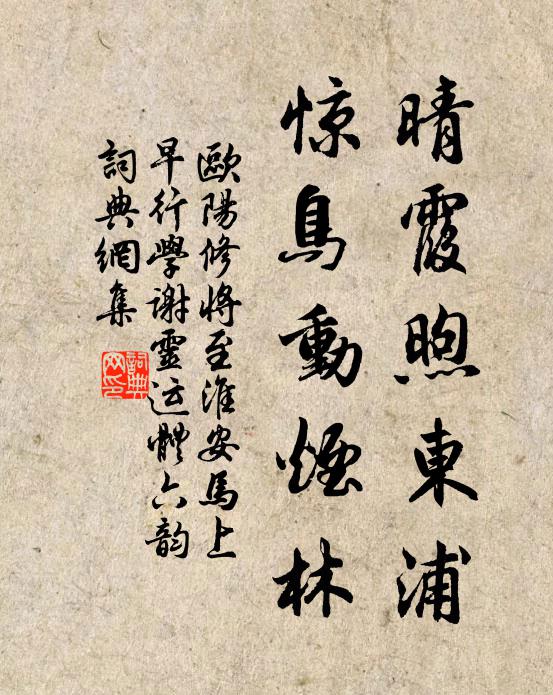 晴霞煦東浦
惊鳥動煙林
歐陽修將至淮安馬上
早行學謝靈运體六韵
詞典網集
詞典
网印